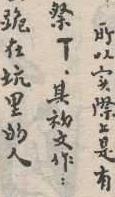 所以实際上是有
祭丅，其初文作：
跪在坑里的人